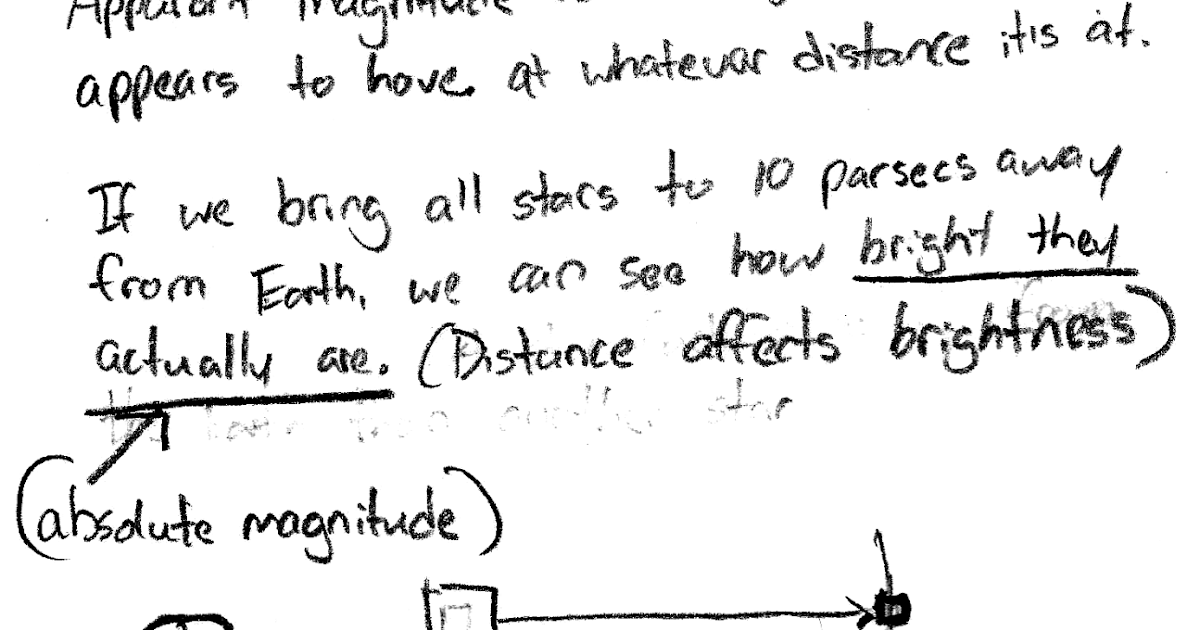 Apparent magnitude
appears to have at whatever distance it's at.
If we bring all stars to 10 parsecs away
from Earth, we can see how bright they
actually are. (Distance affects brightness)
star
(absolute magnitude)